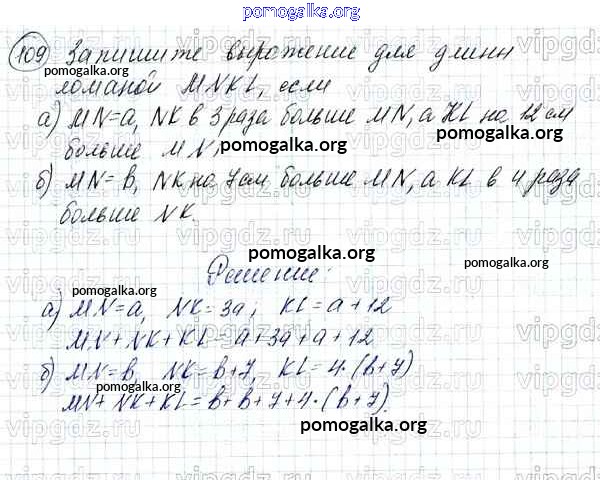 pomogalka.org
109 Запишите выражение для длины
pomogalka.org
ломаной MNKL, если
pomogalka.org
а) MN=a, NK в 3 раза больше MN, а KL на 12 см
больше MN,
pomogalka.org
б) MN=в, NK на 7 см больше MN, а KL в 4 раза
pomogalka.org
больше NK.
pomogalka.org
Решение:
pomogalka.org
а) MN=a, NK=3a; KL=a+12
pomogalka.org
MN+NK+KL=a+3a+a+12
б) MN=в, NK=в+7, KL=4·(в+7)
pomogalka.org
MN+NK+KL=в+в+7+4·(в+7).
pomogalka.org